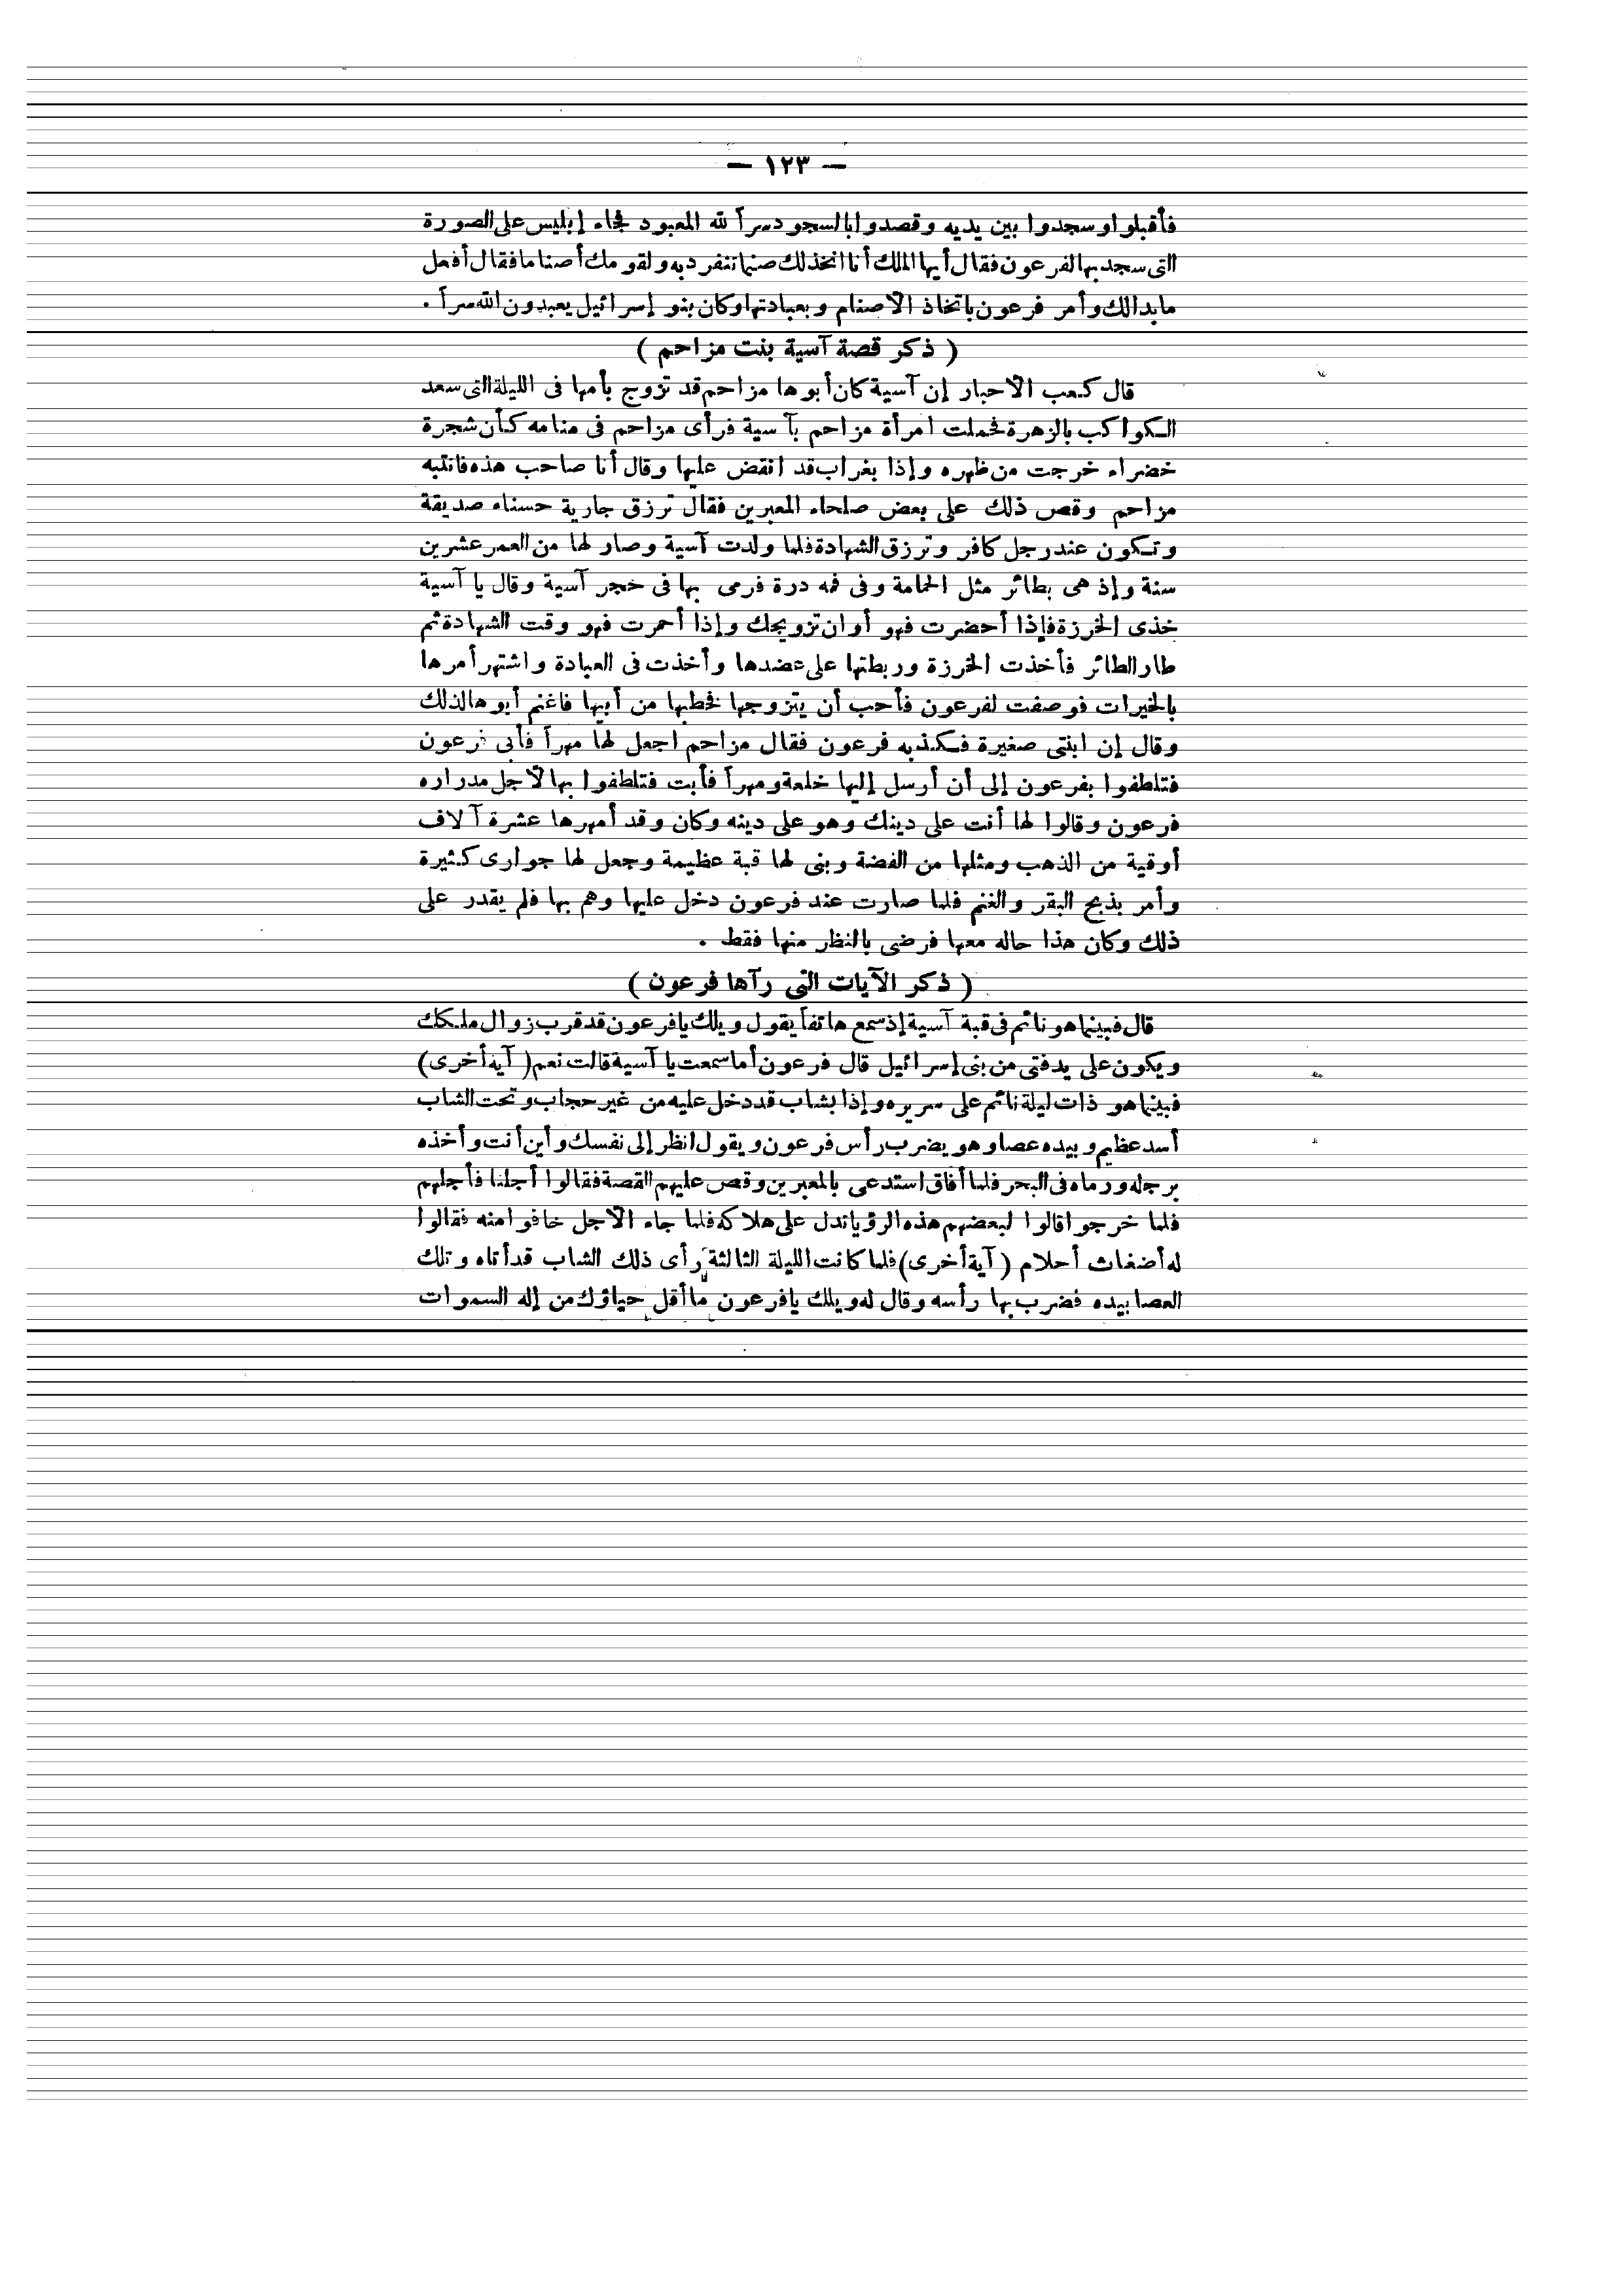 — ١٢٣ —
فأقبلوا وسجدوا بين يديه وقصدوا بالسجود سراً لله المعبود فجاء إبليس على الصورة
التى سجد بها لفرعون فقال أيها الملك أنا اتخذ لك صنما تنفرد به ولقومك أصناما فقال أفعل
ما بدالك وأمر فرعون باتخاذ الأصنام وبعبادتها وكان بنو إسرائيل يعبدون الله سراً .
( ذكر قصة آسية بنت مزاحم )
قال كعب الأحبار إن آسية كان أبوها مزاحم قد تزوج بأمها فى الليلة التى سعد
الكواكب بالزهرة فحملت امرأة مزاحم بآسية فرأى مزاحم فى منامه كأن شجرة
خضراء خرجت من ظهره وإذا بغراب قد انقض عليها وقال أنا صاحب هذه فانتبه
مزاحم وقص ذلك على بعض صلحاء المعبرين فقال ترزق جارية حسناء صديقة
وتكون عند رجل كافر وترزق الشهادة فلما ولدت آسية وصار لها من العمر عشرين
سنة وإذ هى بطائر مثل الحمامة وفى فمه درة فرمى بها فى حجر آسية وقال يا آسية
خذى الخرزة فإذا أحضرت فهو أوان تزويجك وإذا أحمرت فهو وقت الشهادة ثم
طار الطائر فأخذت الخرزة وربطتها على عضدها وأخذت فى العبادة واشتهر أمرها
بالخيرات فوصفت لفرعون فأحب أن يتزوجها فخطبها من أبيها فاغنم أبوها لذلك
وقال إن ابنتى صغيرة فكذبه فرعون فقال مزاحم اجعل لها مهراً فأبى فرعون
فتلطفوا بفرعون إلى أن أرسل إليها خلعة ومهراً فأبت فتلطفوا بها لأجل مدراره
فرعون وقالوا لها أنت على دينك وهو على دينه وكان وقد أمهرها عشرة آلاف
أوقية من الذهب ومثلها من الفضة وبنى لها قبة عظيمة وجعل لها جوارى كثيرة
وأمر بذبح البقر والغنم فلما صارت عند فرعون دخل عليها وهم بها فلم يقدر على
ذلك وكان هذا حاله معها فرضى بالنظر منها فقط .
( ذكر الآيات التى رآها فرعون )
قال فبينما هو نائم فى قبة آسية إذ سمع هاتفاً يقول ويلك يا فرعون قد قرب زوال ملكك
ويكون على يد فتى من بنى إسرائيل قال فرعون أما سمعت يا آسية قالت نعم ( آية أخرى )
فبينما هو ذات ليلة نائم على سريره وإذا بشاب قد دخل عليه من غير حجاب وتحت الشاب
أسد عظيم وبيده عصا وهو يضرب رأس فرعون ويقول انظر إلى نفسك وأين أنت وأخذه
برجله ورماه فى البحر فلما أفاق استدعى بالمعبرين وقص عليهم القصة فقالوا أجلنا فأجلهم
فلما خرجوا قالوا لبعضهم هذه الرؤيا تدل على هلاكه فلما جاء الأجل خافوا منه فقالوا
له أضغاث أحلام ( آية أخرى ) فلما كانت الليلة الثالثة رأى ذلك الشاب قد أتاه وتلك
العصا بيده فضرب بها رأسه وقال له ويلك يا فرعون ما أقل حياؤك من إله السموات